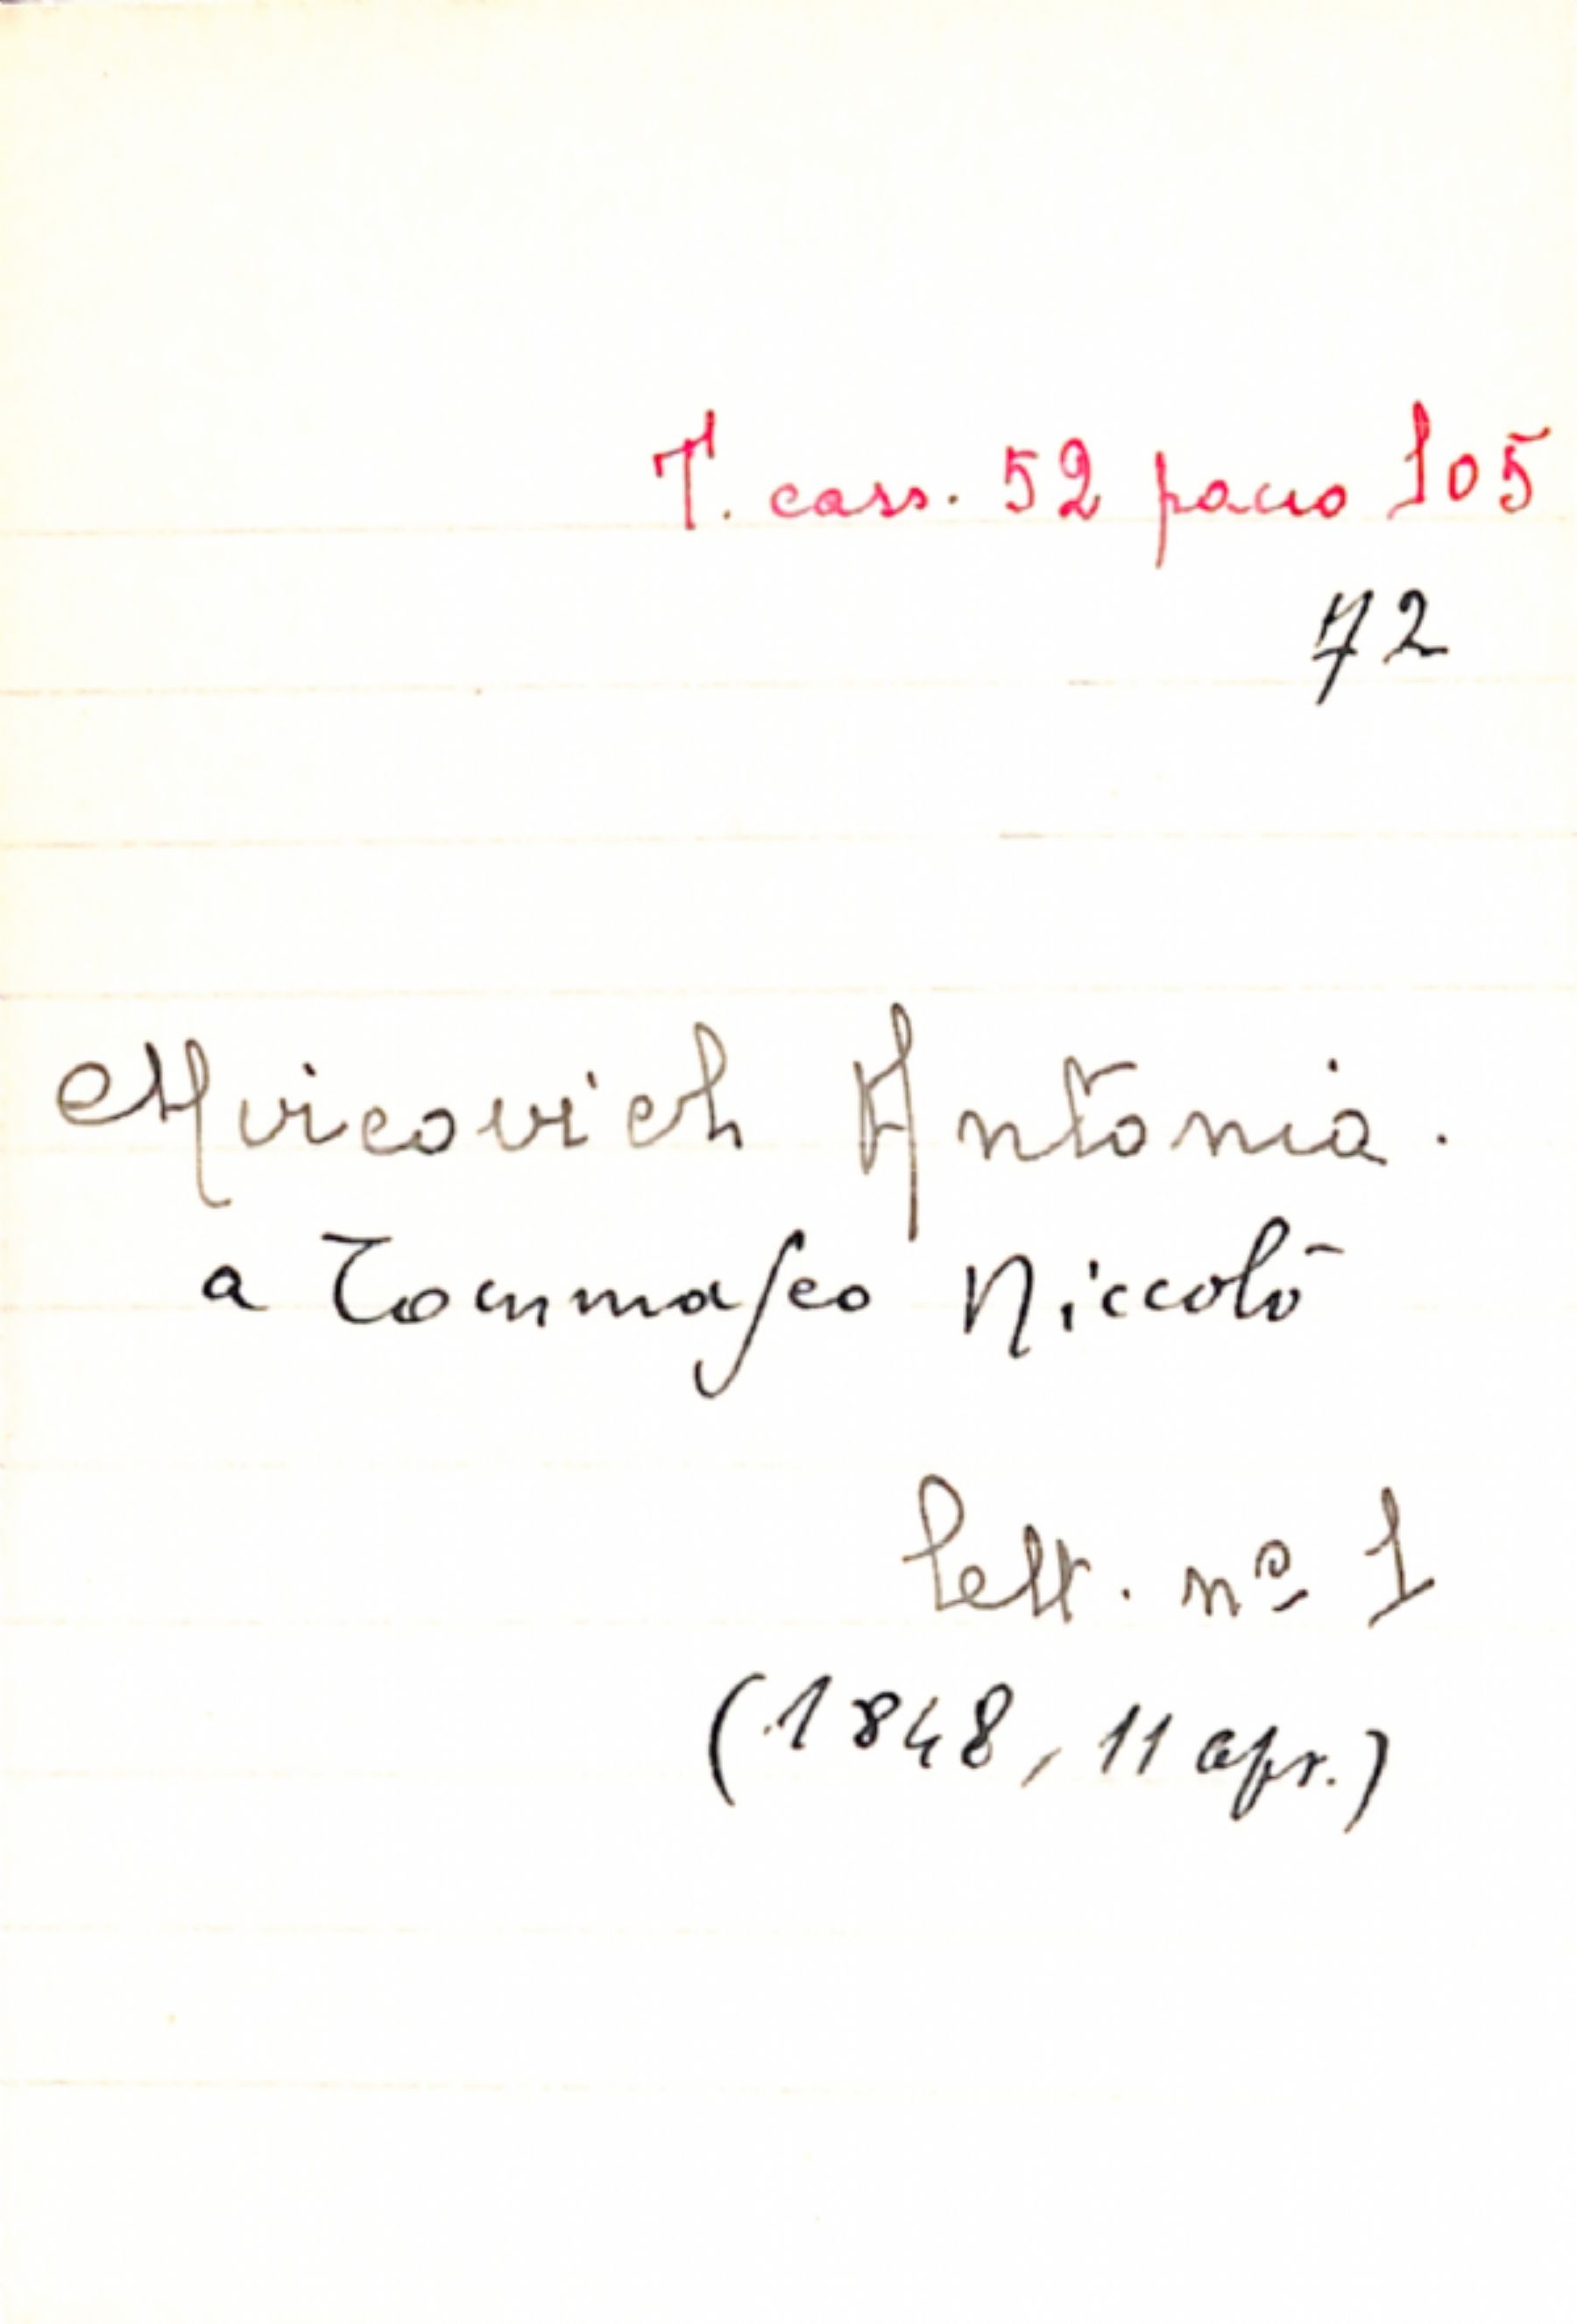 T. cass. 52 pacco 105
72
Mircovich Antonia.
a Tommaseo Niccolò
lett. nº 1
(1848, 11 apr.)